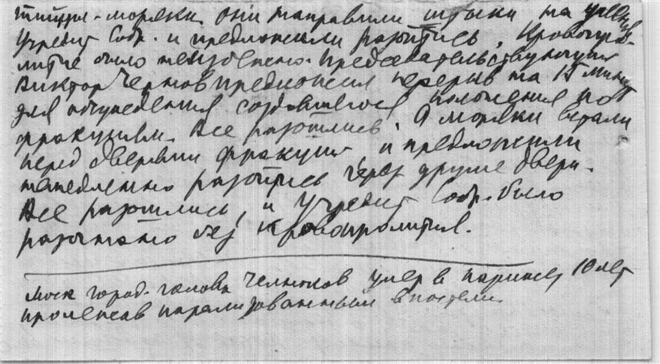 моряки. Они направили штыки на членов
Учредит. Собр. и предложили разойтись. Кровопро-
литие было неизбежно. Председательствующий
Виктор Чернов предложил перерыв на 15 минут
для обсуждения создавшегося положения по
фракциям. Все разошлись. А моряки встали
перед дверями фракций и предложили
немедленно разойтись через другие двери.
Все разошлись, и Учредит. Собр. было
разогнано без кровопролития.
Моск. город. голова Челноков умер в 10 лет
пролежав парализованным в постели.